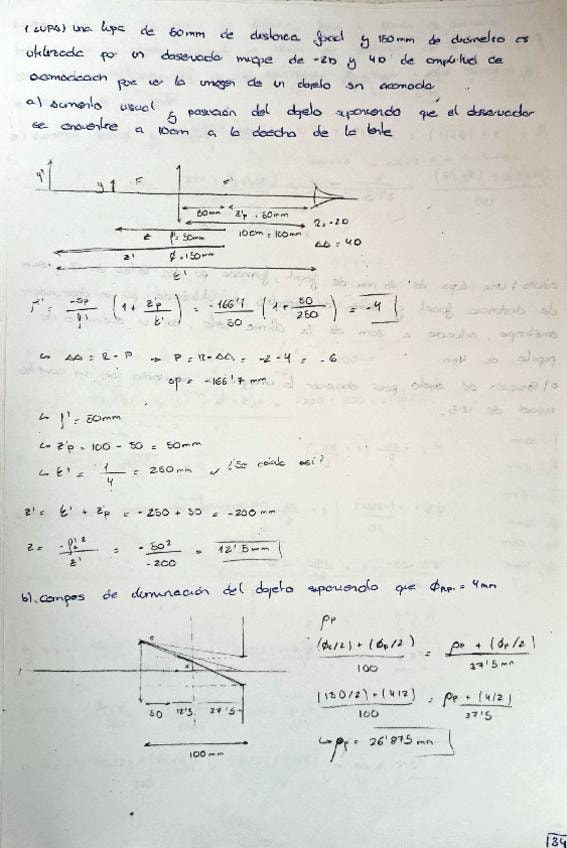 1 LUPA) una lupa de 50mm de distancia focal y 150mm de diámetro es
utilizada por un observador miope de -2D y 4D de amplitud de
acomodación para ver la imagen de un objeto sin acomodar
a) aumento visual y posición del objeto suponiendo que el observador
se encuentre a 10cm a la derecha de la lente
y' y F
50mm z'p = 50mm
z f' = 50mm 10cm = 100mm R = -2D
z' φ = 150mm ΔA = 4D
t'
Γ' = -sp/f' (1 + z'p/t') = -166'7/50 (1 + 50/250) = -4
↳ ΔA = R - P → P = R - ΔA = -2 - 4 = -6
sp = -166'7 mm
↳ f' = 50mm
↳ z'p = 100 - 50 = 50mm
↳ t' = 1/4 = 250mm
z' = t' + z'p = -250 + 50 = -200 mm
z = -f'²/z' = -50²/-200 = 12'5mm
b) campos de iluminación del objeto suponiendo que φp.p. = 4mm
ρp
(φL/2) + (φp/2)/100 = ρp + (φp/2)/37'5 mm
50 12'5 37'5
(150/2) + (4/2)/100 = ρp + (4/2)/37'5
↳ ρp = 26'875 mm
100 mm
134